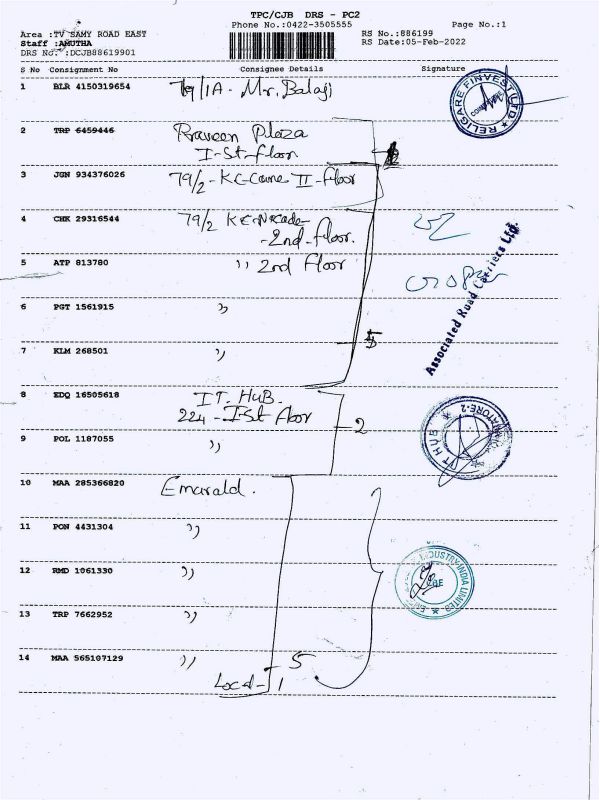 TPC/CJB DRS - PC2
Phone No.:0422-3505555
Page No.:1
Area :TV SAMY ROAD EAST
Staff :AMUTHA
DRS No. :DCJB88619901
RS No.:886199
RS Date:05-Feb-2022
S No Consignment No Consignee Details Signature
1 BLR 4150319654 79/1A - Mr. Balaji
RELIGARE FINVEST LTD
2 TRP 6459446 Praveen Plaza
I-St-floor
3 JGN 934376026 79/2 - KC- II - Floor
4 CHK 29316544 79/2 KC
-2nd-Floor.
5 ATP 813780 ,, 2nd Floor
Associated Road Carriers Ltd.
6 PGT 1561915 ,,
7 KLM 268501 ,,
5
8 EDQ 16505618 IT. HUB.
224 - I-St floor
2
IT HUB
9 POL 1187055 ,,
10 MAA 285366820 Emarald.
11 PON 4431304 ,,
12 RMD 1061330 ,,
INDUSTRY INDIA LIMITED
CBE
13 TRP 7662952 ,,
14 MAA 565107129 ,, 5
Local - 1